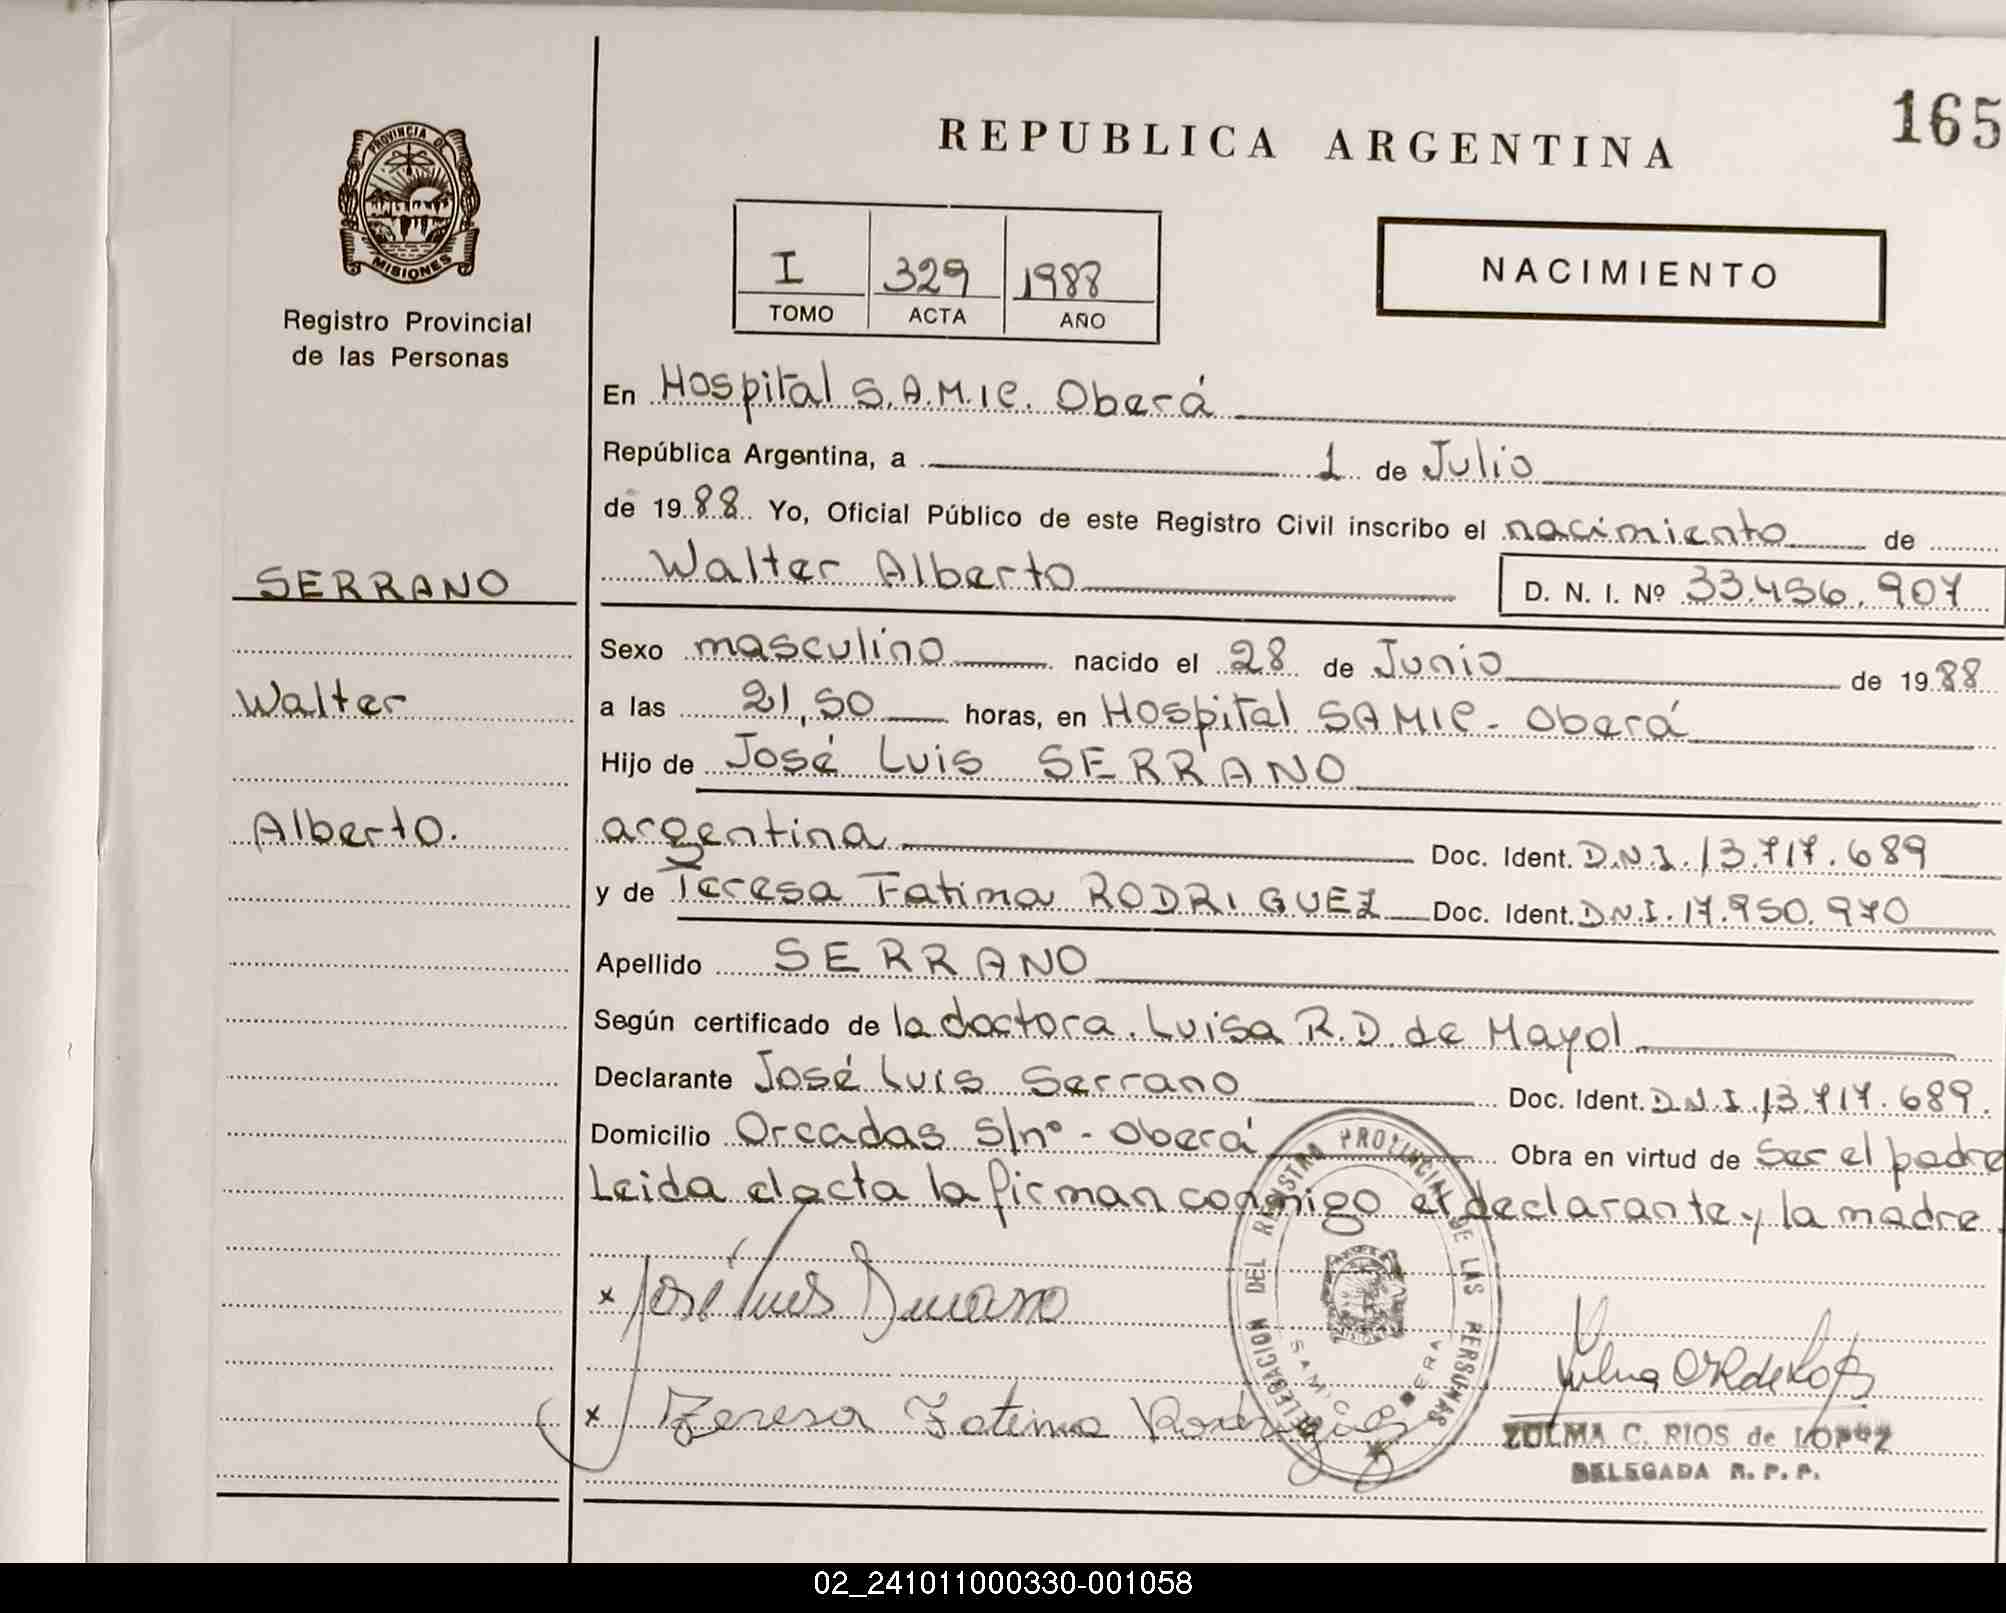 165
REPUBLICA ARGENTINA
PROVINCIA DE
MISIONES
Registro Provincial
de las Personas
I 329 1988
TOMO ACTA AÑO
NACIMIENTO
En Hospital S.A.M.I.C. Oberá
República Argentina, a 1 de Julio
de 1988 Yo, Oficial Público de este Registro Civil inscribo el nacimiento de
SERRANO
Walter Alberto D. N. I. Nº 33.456.907
Sexo masculino nacido el 28 de Junio de 1988
Walter
a las 21,50 horas, en Hospital SAMIC - Oberá
Hijo de José Luis SERRANO
Alberto.
argentina Doc. Ident. D.N.I. 13.717.689
y de Teresa Fatima RODRIGUEZ Doc. Ident. D.N.I. 17.950.970
Apellido SERRANO
Según certificado de la doctora. Luisa R.D. de Mayol
Declarante José Luis Serrano Doc. Ident. D.N.I. 13.717.689.
Domicilio Orcadas S/nº - Oberá Obra en virtud de Ser el padre
Leida el acta la firman conmigo el declarante y la madre.
DELEGACION DEL REGISTRO PROVINCIAL DE LAS PERSONAS
SAMIC OBERA
x José Luis Serrano
x Teresa Fatima Rodriguez
ZULMA C. RIOS de LOPEZ
DELEGADA R. P. P.
02_241011000330-001058